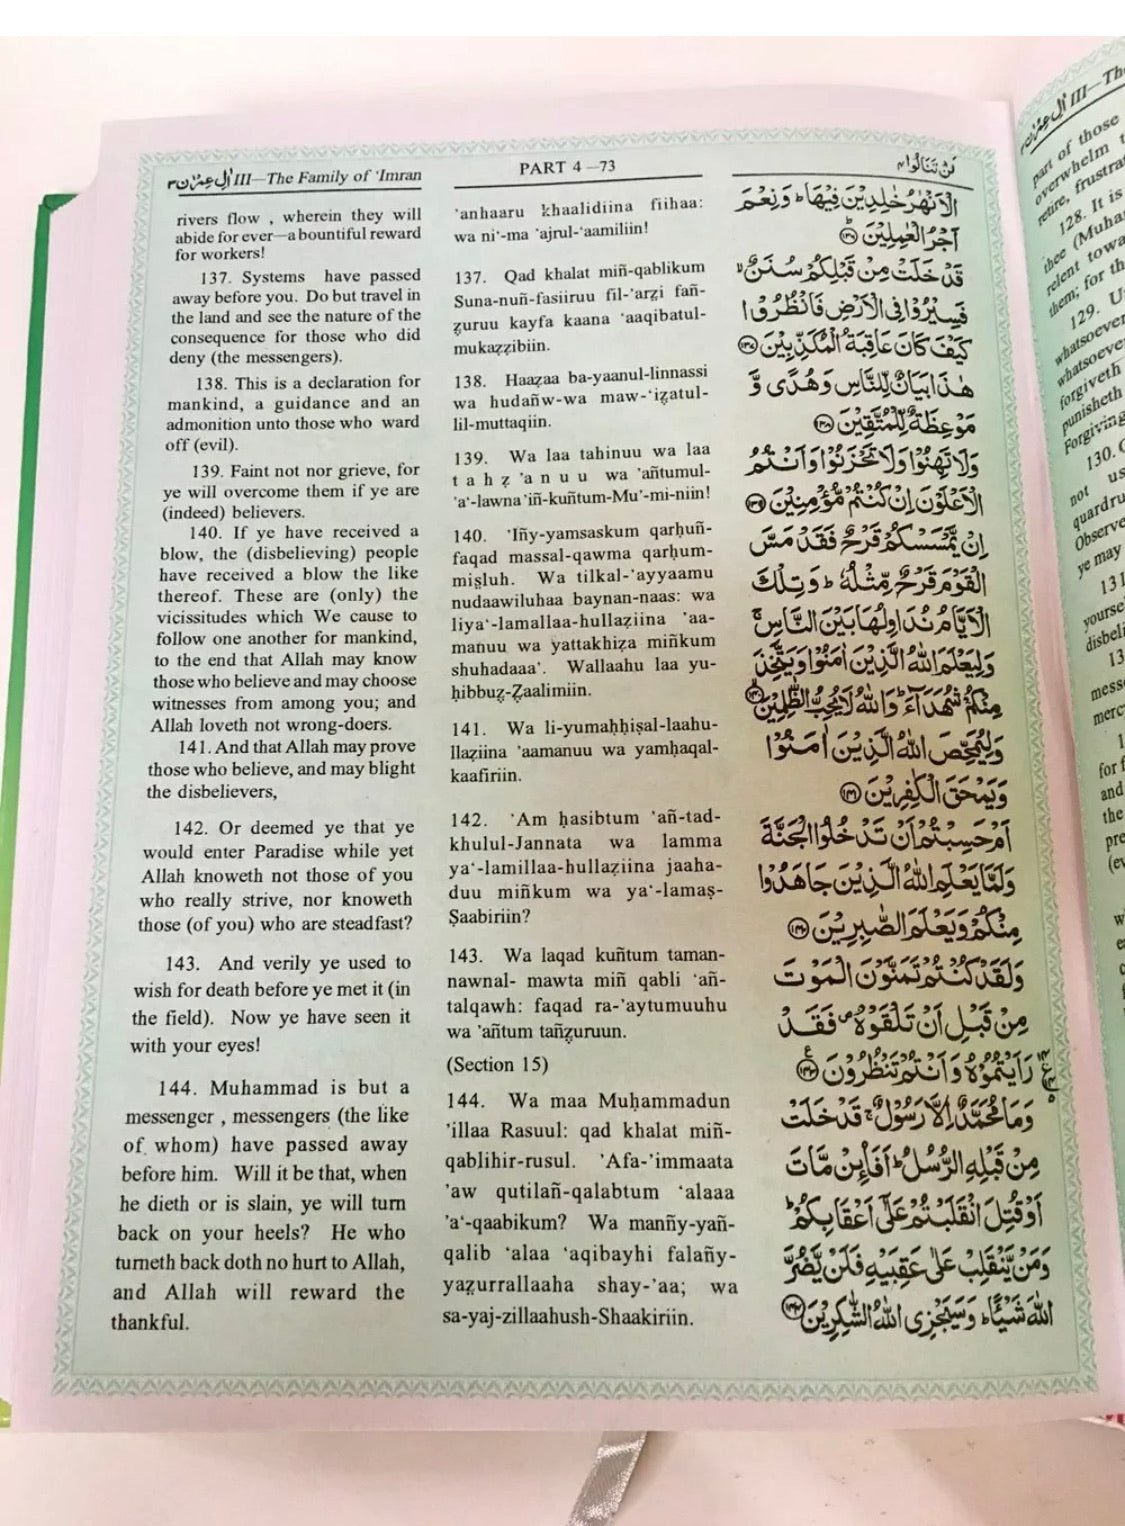 اٰلِ عِمْرٰن ٣ III—The Family of ‘Imran
rivers flow , wherein they will
abide for ever—a bountiful reward
for workers!
137. Systems have passed
away before you. Do but travel in
the land and see the nature of the
consequence for those who did
deny (the messengers).
138. This is a declaration for
mankind, a guidance and an
admonition unto those who ward
off (evil).
139. Faint not nor grieve, for
ye will overcome them if ye are
(indeed) believers.
140. If ye have received a
blow, the (disbelieving) people
have received a blow the like
thereof. These are (only) the
vicissitudes which We cause to
follow one another for mankind,
to the end that Allah may know
those who believe and may choose
witnesses from among you; and
Allah loveth not wrong-doers.
141. And that Allah may prove
those who believe, and may blight
the disbelievers,
142. Or deemed ye that ye
would enter Paradise while yet
Allah knoweth not those of you
who really strive, nor knoweth
those (of you) who are steadfast?
143. And verily ye used to
wish for death before ye met it (in
the field). Now ye have seen it
with your eyes!
144. Muhammad is but a
messenger , messengers (the like
of whom) have passed away
before him. Will it be that, when
he dieth or is slain, ye will turn
back on your heels? He who
turneth back doth no hurt to Allah,
and Allah will reward the
thankful.
PART 4 –73
’anhaaru khaalidiina fiihaa:
wa ni‘-ma ’ajrul-‘aamiliin!
137. Qad khalat miñ-qablikum
Suna-nuñ-fasiiruu fil-’arẓi fañ-
ẓuruu kayfa kaana ‘aaqibatul-
mukaẓẓibiin.
138. Haaẓaa ba-yaanul-linnassi
wa hudañw-wa maw-‘iẓatul-
lil-muttaqiin.
139. Wa laa tahinuu wa laa
tahẓ’anuu wa ’añtumul-
’a‘-lawna ’iñ-kuñtum-Mu’-mi-niin!
140. ’Iñy-yamsaskum qarḥuñ-
faqad massal-qawma qarḥum-
miṣluh. Wa tilkal-’ayyaamu
nudaawiluhaa baynan-naas: wa
liya‘-lamallaa-hullaẓiina ’aa-
manuu wa yattakhiẓa miñkum
shuhadaaa’. Wallaahu laa yu-
ḥibbuẓ-Ẓaalimiin.
141. Wa li-yumaḥḥiṣal-laahu-
llaẓiina ’aamanuu wa yamḥaqal-
kaafiriin.
142. ’Am ḥasibtum ’añ-tad-
khulul-Jannata wa lamma
ya‘-lamillaa-hullaẓiina jaaha-
duu miñkum wa ya‘-lamaṣ-
Ṣaabiriin?
143. Wa laqad kuñtum taman-
nawnal- mawta miñ qabli ‘añ-
talqawh: faqad ra-’aytumuuhu
wa ’añtum tañẓuruun.
(Section 15)
144. Wa maa Muḥammadun
’illaa Rasuul: qad khalat miñ-
qablihir-rusul. ’Afa-’immaata
’aw qutilañ-qalabtum ‘alaaa
’a‘-qaabikum? Wa mañny-yañ-
qalib ‘alaa ‘aqibayhi falañy-
yaẓurrallaaha shay-’aa; wa
sa-yaj-zillaahush-Shaakiriin.
لَنْ تَنَالُوا ٤
الْاَنْهٰرُ خٰلِدِيْنَ فِيْهَا ؕ وَنِعْمَ
اَجْرُ الْعٰمِلِيْنَ ﴿۱۳۶﴾
قَدْ خَلَتْ مِنْ قَبْلِكُمْ سُنَنٌ ۙ
فَسِيْرُوْا فِى الْاَرْضِ فَانْظُرُوْا
كَيْفَ كَانَ عَاقِبَةُ الْمُكَذِّبِيْنَ ﴿۱۳۷﴾
هٰذَا بَيَانٌ لِّلنَّاسِ وَهُدًى وَّ
مَوْعِظَةٌ لِّلْمُتَّقِيْنَ ﴿۱۳۸﴾
وَلَا تَهِنُوْا وَلَا تَحْزَنُوْا وَاَنْتُمُ
الْاَعْلَوْنَ اِنْ كُنْتُمْ مُّؤْمِنِيْنَ ﴿۱۳۹﴾
اِنْ يَّمْسَسْكُمْ قَرْحٌ فَقَدْ مَسَّ
الْقَوْمَ قَرْحٌ مِّثْلُهٗ ؕ وَتِلْكَ
الْاَيَّامُ نُدَاوِلُهَا بَيْنَ النَّاسِ ۚ
وَلِيَعْلَمَ اللّٰهُ الَّذِيْنَ اٰمَنُوْا وَيَتَّخِذَ
مِنْكُمْ شُهَدَآءَ ؕ وَاللّٰهُ لَا يُحِبُّ الظّٰلِمِيْنَ ﴿۱۴۰﴾
وَلِيُمَحِّصَ اللّٰهُ الَّذِيْنَ اٰمَنُوْا
وَيَمْحَقَ الْكٰفِرِيْنَ ﴿۱۴۱﴾
اَمْ حَسِبْتُمْ اَنْ تَدْخُلُوا الْجَنَّةَ
وَلَمَّا يَعْلَمِ اللّٰهُ الَّذِيْنَ جَاهَدُوْا
مِنْكُمْ وَيَعْلَمَ الصّٰبِرِيْنَ ﴿۱۴۲﴾
وَلَقَدْ كُنْتُمْ تَمَنَّوْنَ الْمَوْتَ
مِنْ قَبْلِ اَنْ تَلْقَوْهُ ۪ فَقَدْ
رَاَيْتُمُوْهُ وَاَنْتُمْ تَنْظُرُوْنَ ﴿۱۴۳﴾
وَمَا مُحَمَّدٌ اِلَّا رَسُوْلٌ ۚ قَدْ خَلَتْ
مِنْ قَبْلِهِ الرُّسُلُ ؕ اَفَا۟ئِنْ مَّاتَ
اَوْ قُتِلَ انْقَلَبْتُمْ عَلٰۤى اَعْقَابِكُمْ ؕ
وَمَنْ يَّنْقَلِبْ عَلٰى عَقِبَيْهِ فَلَنْ يَّضُرَّ
اللّٰهَ شَيْـًٔا ؕ وَسَيَجْزِى اللّٰهُ الشّٰكِرِيْنَ ﴿۱۴۴﴾
اٰلِ عِمْرٰن ٣ III—The
part of those
overwhelm
retire, frustra
128. It is
thee (Muha
relent towa
them; for th
129. U
whatsoever
whatsoever
forgiveth
punisheth
Forgiving
130.
not us
quadru
Observe
ye may
131
yourse
disbeli
13
messe
merc
1
for f
and
the
pre
(ev